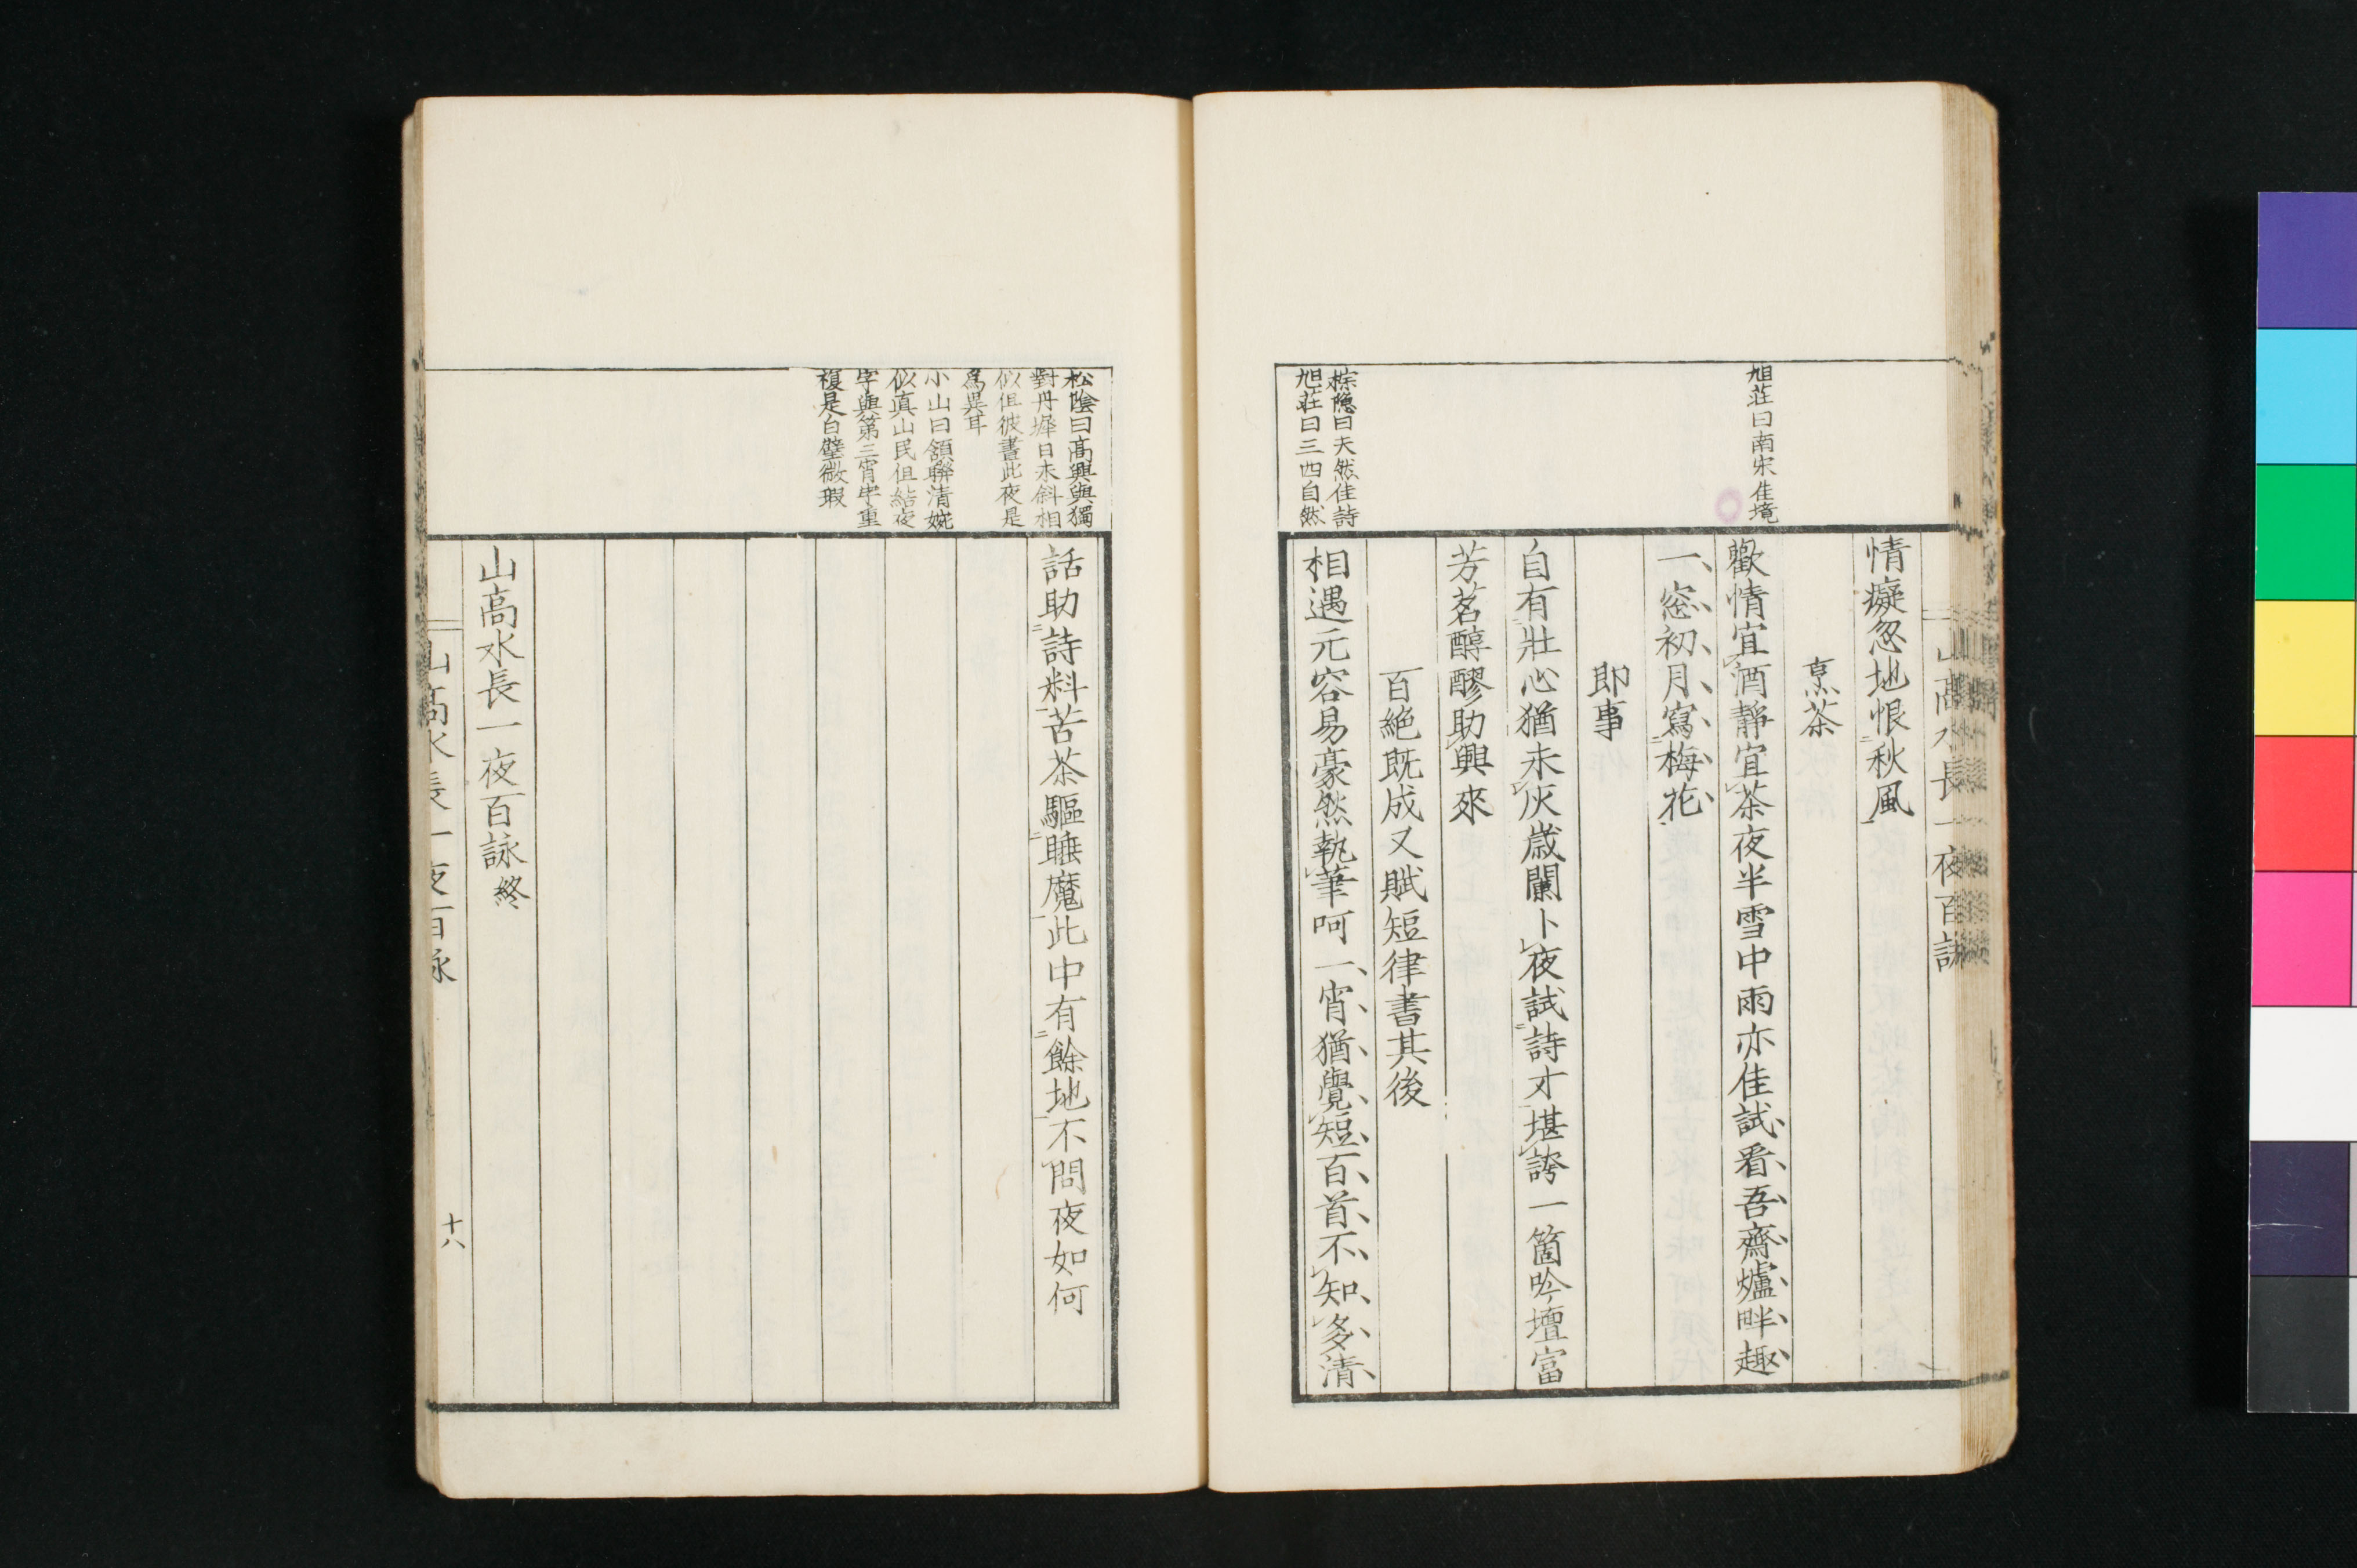 山高水長一夜百詠
情癡忽地恨秋風
烹茶
歡情宜酒靜宜茶夜半雪中雨亦佳試看吾齋爐畔趣
一窓初月寫梅花
即事
自有壯心猶未灰歳闌卜夜試詩才堪誇一箇吟壇富
芳茗醇醪助興來
百絶既成又賦短律書其後
相遇元容易豪然執筆呵一宵猶覺短百首不知多清
旭荘曰南宋佳境
棕隠曰天然佳詩
旭荘曰三四自然
話助詩料苦茶驅睡魔此中有餘地不問夜如何
山高水長一夜百詠終
松陰曰高興與獨
對丹墀日未斜相
似但彼晝此夜是
爲異耳
小山曰頷聯清婉
似真山民但結夜
字與第三宵字重
複是白璧微瑕
山高水長一夜百詠
十八